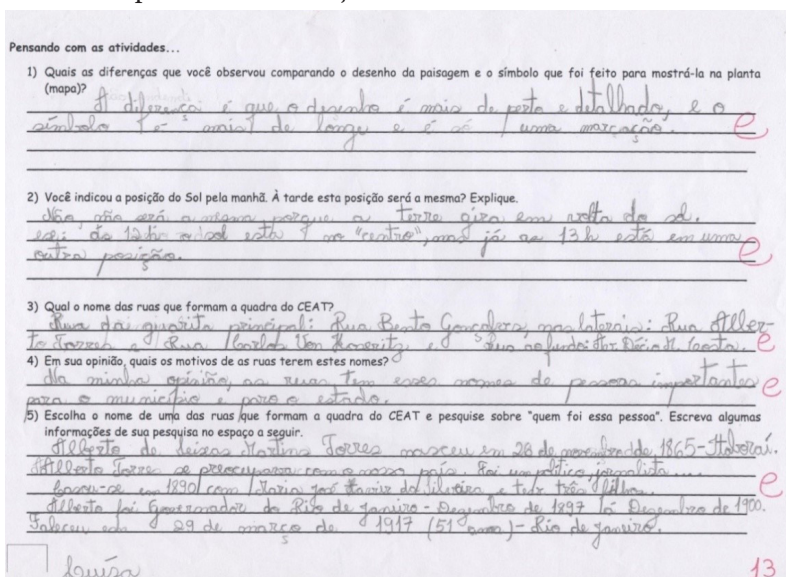 Pensando com as atividades...
1) Quais as diferenças que você observou comparando o desenho da paisagem e o símbolo que foi feito para mostrá-la na planta
(mapa)?
A diferença é que o desenho é mais de perto e detalhado, e o
símbolo é mais de longe e é só uma marcação.
e
2) Você indicou a posição do Sol pela manhã. À tarde esta posição será a mesma? Explique.
Não, não será a mesma porque a terra gira em volta do sol.
ex: às 12h o sol está no "centro", mas já as 13h está em uma
outra posição.
e
3) Qual o nome das ruas que formam a quadra do CEAT?
Rua da guarita principal: Rua Bento Gonçalves, nas laterais: Rua Alber-
to Torres e Rua Carlos Von Koseritz, e Rua no fundo: Costa.
e
4) Em sua opinião, quais os motivos de as ruas terem estes nomes?
Na minha opinião, as ruas tem esses nomes de pessoas importantes
para o município e para o estado.
e
5) Escolha o nome de uma das ruas que formam a quadra do CEAT e pesquise sobre "quem foi essa pessoa". Escreva algumas
informações de sua pesquisa no espaço a seguir.
Alberto de Seixas Martins Torres nasceu em 26 de novembro de 1865-Itaboraí.
Alberto Torres se preocupava com o nosso país. Foi um político jornalista...
Casou-se em 1890 com Maria José Xavier da Silveira e teve três filhos.
Alberto foi Governador do Rio de Janeiro - Dezembro de 1897 Dezembro de 1900.
Faleceu em 29 de março de 1917 (51 anos) - Rio de Janeiro.
e
Luísa
13